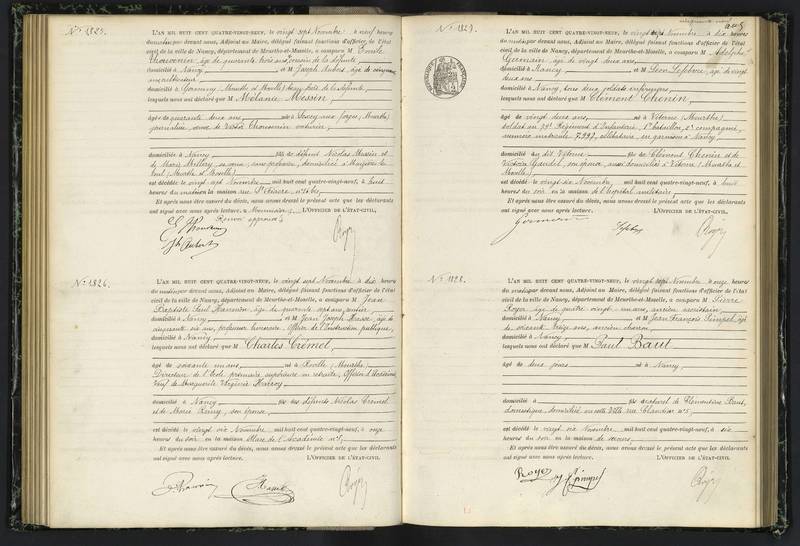 N° 1825.
L'AN MIL HUIT CENT QUATRE-VINGT-NEUF, le vingt sept Novembre à neuf heures
du matin par devant nous, Adjoint au Maire, délégué faisant fonctions d'officier de l'état
civil de la ville de Nancy, département de Meurthe-et-Moselle, a comparu M Emile
âgé de quarante trois ans cousin de la défunte,
domicilié à Nancy et M Joseph Aubert âgé de cinquante
domicilié à (Meurthe et Moselle) beau frère de la défunte,
lesquels nous ont déclaré que M Mélanie Messin
âgée de quarante deux ans née à Sexey aux forges (Meurthe)
journalière veuve de Victor
domiciliée à Nancy fille de défunt Nicolas Messin et
de Marie sa veuve, sans profession, domiciliée à
(Meurthe et Moselle)
est décédée le vingt sept Novembre mil huit cent quatre-vingt-neuf, à huit
heures du matin en la maison rue
Et après nous être assuré du décès, nous avons dressé le présent acte que les déclarants
ont signé avec nous après lecture. L'OFFICIER DE L'ÉTAT-CIVIL,
N° 1826.
L'AN MIL HUIT CENT QUATRE-VINGT-NEUF, le vingt sept Novembre à dix heures
du matin par devant nous, Adjoint au Maire, délégué faisant fonctions d'officier de l'état
civil de la ville de Nancy, département de Meurthe-et-Moselle, a comparu M Jean
Baptiste Paul âgé de quarante sept ans, rentier
domicilié à Nancy et M Jean Joseph âgé de
cinquante six ans, professeur honoraire Officier de l'Instruction publique,
domicilié à Nancy
lesquels nous ont déclaré que M Charles Crémel
âgé de soixante un ans né à (Meurthe)
Directeur de l'Ecole primaire supérieure en retraite, Officier d'Académie
veuf de Marguerite Virginie
domicilié à Nancy fils des défunts Nicolas Crémel
et de Marie Rémy son épouse
est décédé le vingt six Novembre mil huit cent quatre-vingt-neuf, à onze
heures du soir en la maison Place de l'Académie n° 5
Et après nous être assuré du décès, nous avons dressé le présent acte que les déclarants
ont signé avec nous après lecture. L'OFFICIER DE L'ÉTAT-CIVIL,
N° 1827.
L'AN MIL HUIT CENT QUATRE-VINGT-NEUF, le vingt sept Novembre à dix heures
du matin par devant nous, Adjoint au Maire, délégué faisant fonctions d'officier de l'état
civil de la ville de Nancy, département de Meurthe-et-Moselle, a comparu M Adolphe
Germain, âgé de vingt deux ans
domicilié à Nancy et M Léon Lefebvre, âgé de vingt
deux ans
domicilié à Nancy, tous deux soldats infirmiers
lesquels nous ont déclaré que M Clément Chenin,
âgé de vingt deux ans, né à Véterne (Meurthe)
soldat au Régiment d'Infanterie, 1er bataillon, 2e compagnie,
numéro matricule 7997, célibataire, en garnison à Nancy
domicilié au dit fils de Clément Chenin et de
Victoire son épouse domiciliés à (Meurthe et
Moselle)
est décédé le vingt six Novembre mil huit cent quatre-vingt-neuf, à huit
heures du soir en la maison de l'hôpital militaire
Et après nous être assuré du décès, nous avons dressé le présent acte que les déclarants
ont signé avec nous après lecture. L'OFFICIER DE L'ÉTAT-CIVIL,
Germain
N° 1828.
L'AN MIL HUIT CENT QUATRE-VINGT-NEUF, le vingt sept Novembre à onze heures
du matin par devant nous, Adjoint au Maire, délégué faisant fonctions d'officier de l'état
civil de la ville de Nancy, département de Meurthe-et-Moselle, a comparu M Pierre
Royer âgé de quatre vingt un ans, ancien
domicilié à Nancy et M Jean François âgé
de soixante treize ans, ancien charron
domicilié à Nancy
lesquels nous ont déclaré que M Paul Baut
âgé de deux jours né à Nancy
domicilié à fils naturel de Clémentine Baut,
domestique, domiciliée en cette ville rue n° 5
est décédé le vingt six Novembre mil huit cent quatre-vingt-neuf, à six
heures du soir en la maison de secours
Et après nous être assuré du décès, nous avons dressé le présent acte que les déclarants
ont signé avec nous après lecture. L'OFFICIER DE L'ÉTAT-CIVIL,
Royer